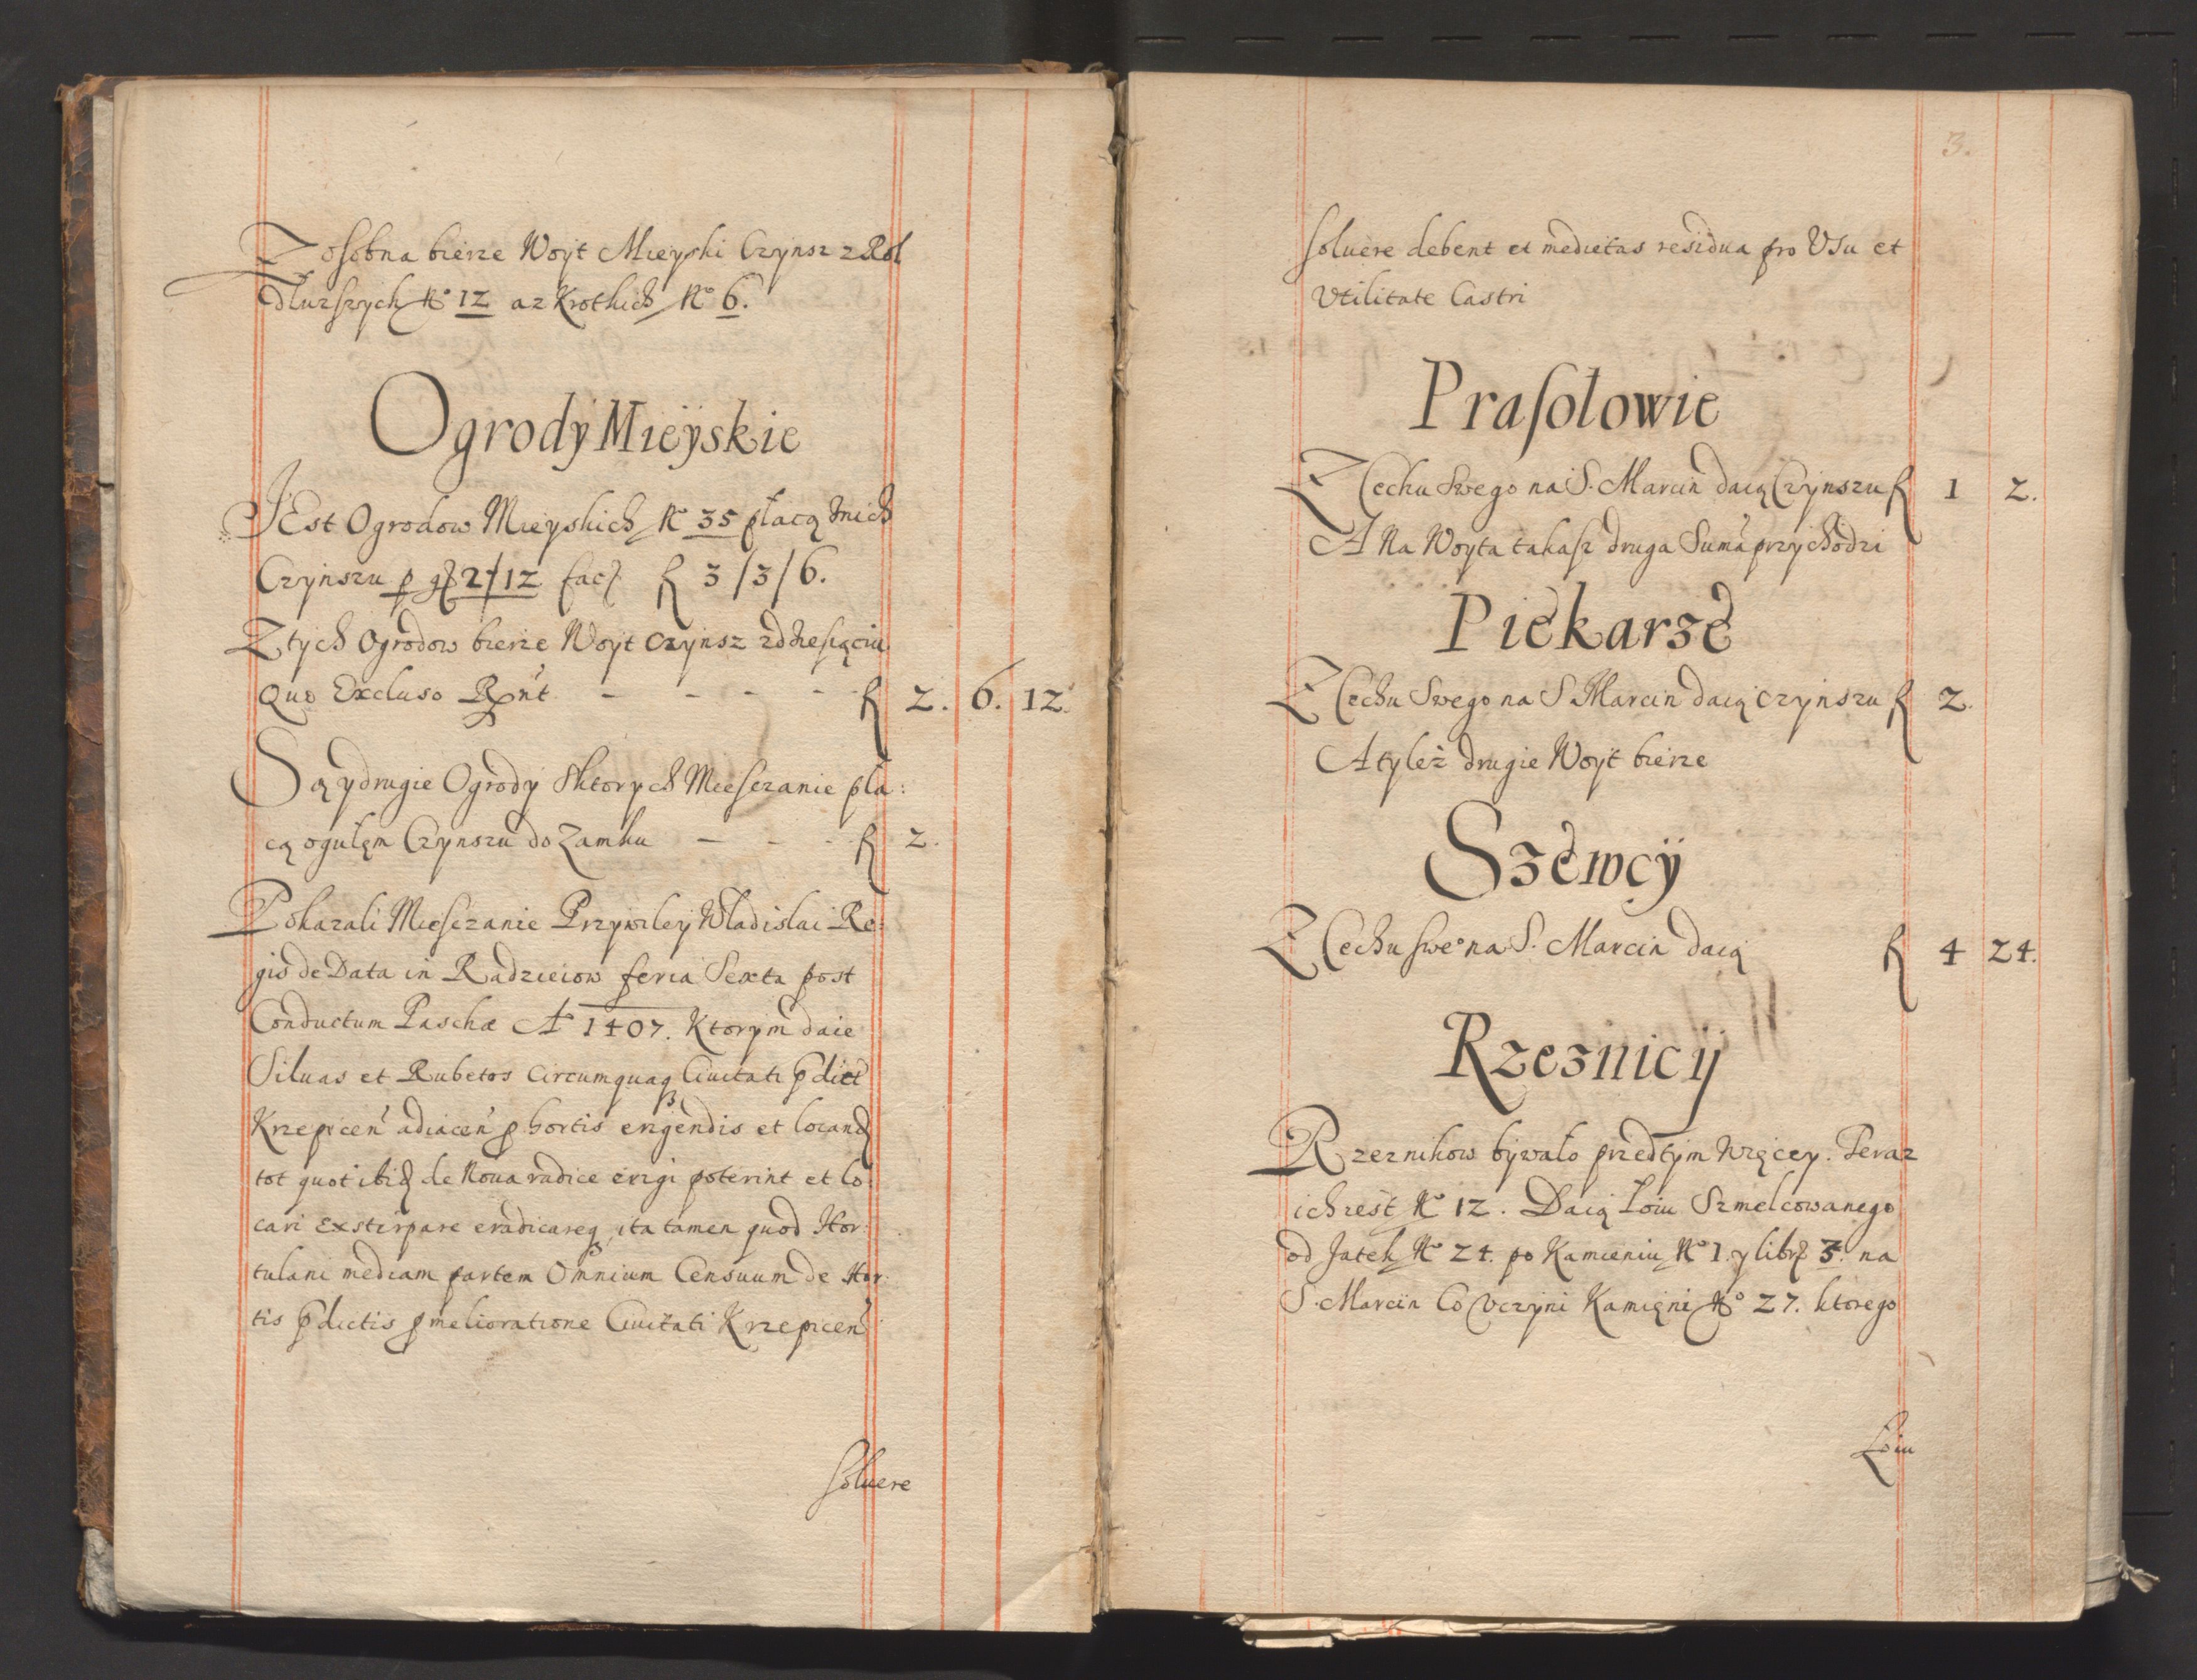 Zosobna bierze Woyt Mieyski Czynsz z Rol
dłuzszych No 12 az Krothich No 6.
Ogrody Mieyskie
JEst Ogrodow Mieyskich No 35 płacą znich
Czynszu p gr 2/12 fac f 3/3/6.
Ztych Ogrodow bierze Woyt Czynsz zdziesiąciu
Quo Excluso Rnt - - - - f 2. 6. 12.
Są y drugie Ogrody sktorych Miesczanie pła:
cą ogułęm Czynszu do Zamku - - - f 2.
Pokazali Miesczanie Przywiley Wladislai Re:
gis de Data in Radzieiow feria Sexta post
Conductum Paschæ Ao 1407. Ktorym daie
Siluas et Rubetos Circumquaq Ciuitati pdict
Krzepicen adiacen p hortis erigendis et locand
tot quot ibid de Noua radice erigi poterint et lo:
cari Exstirpare eradicareq, ita tamen quod Hor:
tulani mediam partem Omnium Censuum de Hor:
tis pdictis p melioratione Ciuitati Krzepicen
soluere
3.
soluere debent et medietas residua pro Usu et
Utilitate Castri
Prasołowie
Z Cechu Swego na S. Marcin daią Czynszu f 1 2.
A Na Woyta takasz druga Suma przychodzi
Piekarze
Z Cechu Swego na S Marcin daią Czynszu f 2.
A tyleż drugie Woyt bierze
Szewcy
Z Cechu sweo na S. Marcin daią f 4 24.
Rzeznicy
Rzeznikow bywało przedtym więcey. Teraz
ich iest No 12. Daią Łoiu Szmelcowanego
od Jatek No 24. po Kamieniu No 1. y libr 3. na
S. Marcin Co Uczyni Kamięni No 27. ktorego
Łoiu